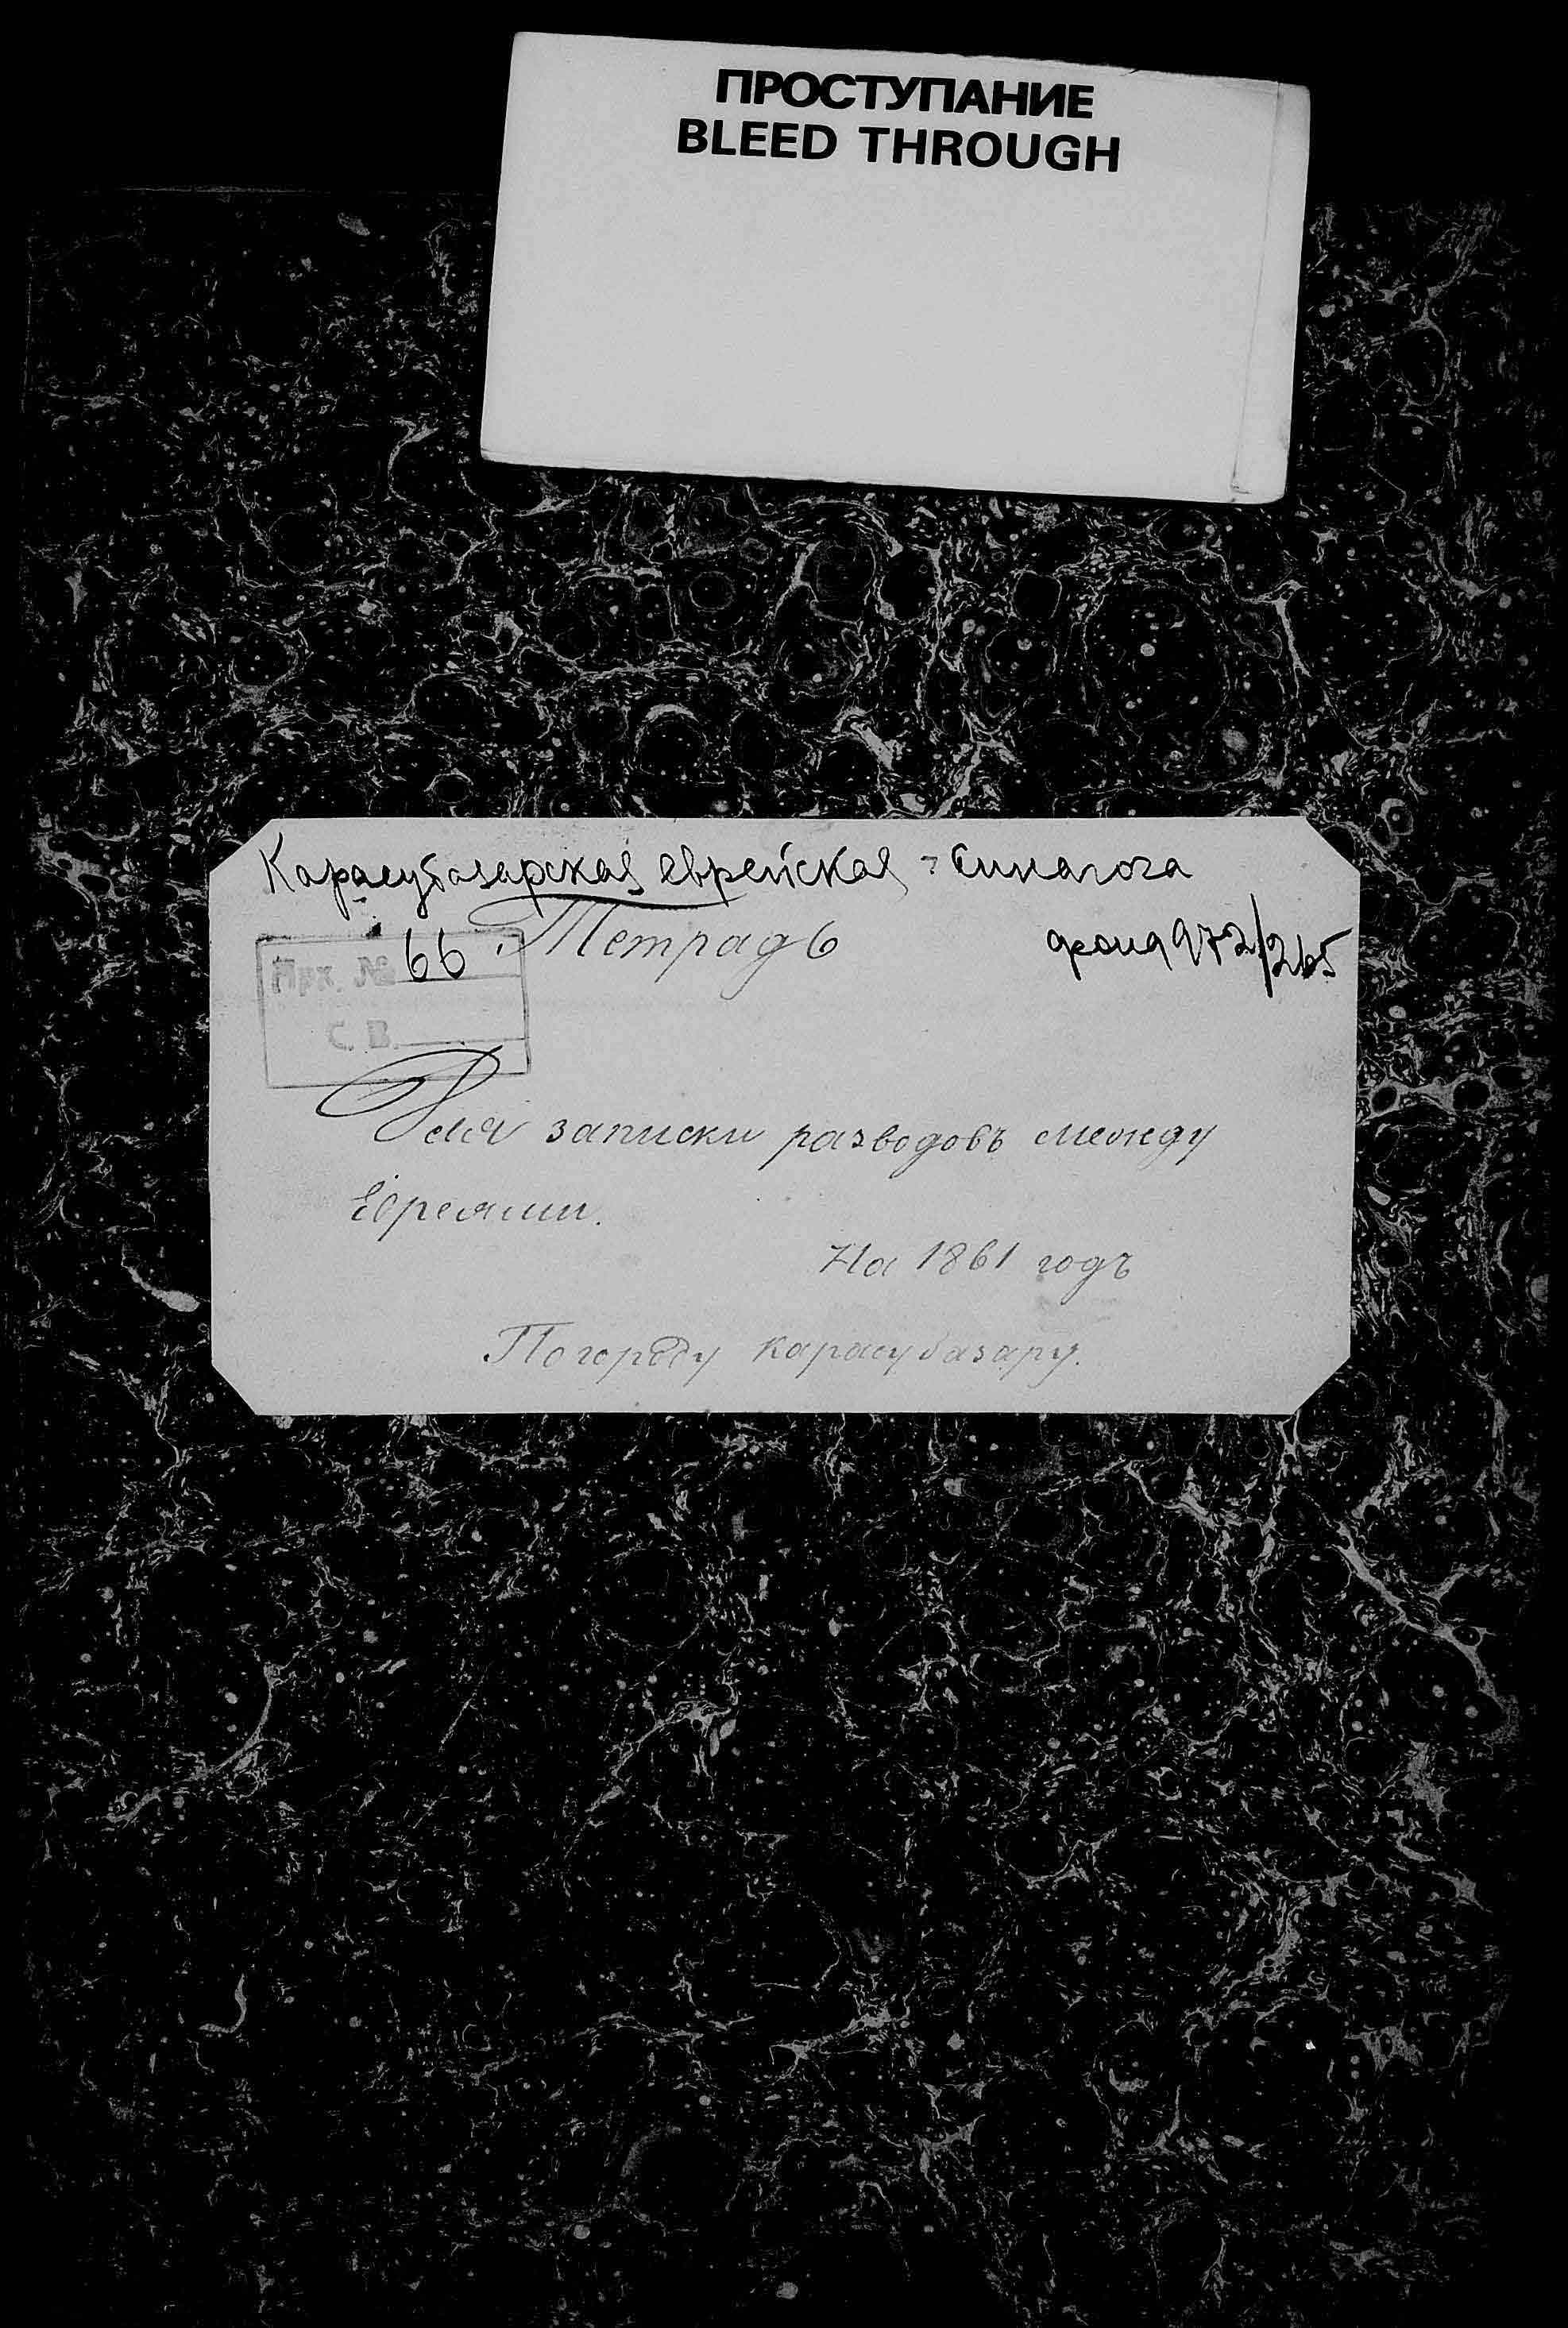 ПРОСТУПАНИЕ
BLEED THROUGH
Карасубазарская еврейская синагога
Тетрадь
фонд 972/265
Арх. № 66
С. В.
Для записки разводовъ между
Евреями.
На 1861 годъ
По городу Карасубазару.